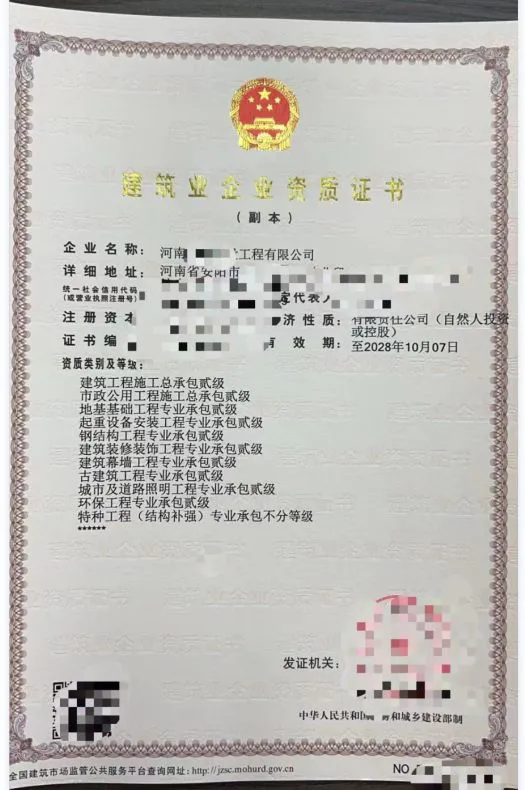 建筑业企业资质证书
（副本）
企业名称：河南 工程有限公司
详细地址：河南省安阳市
统一社会信用代码
（或营业执照注册号）： 定代表人
注册资本 济性质：有限责任公司（自然人投资
或控股）
证书编 有效期：至2028年10月07日
资质类别及等级：
建筑工程施工总承包贰级
市政公用工程施工总承包贰级
地基基础工程专业承包贰级
起重设备安装工程专业承包贰级
钢结构工程专业承包贰级
建筑装修装饰工程专业承包贰级
建筑幕墙工程专业承包贰级
古建筑工程专业承包贰级
城市及道路照明工程专业承包贰级
环保工程专业承包贰级
特种工程（结构补强）专业承包不分等级
******
发证机关：
中华人民共和 和城乡建设部制
全国建筑市场监管公共服务平台查询网址：http://jzsc.mohurd.gov.cn
NO